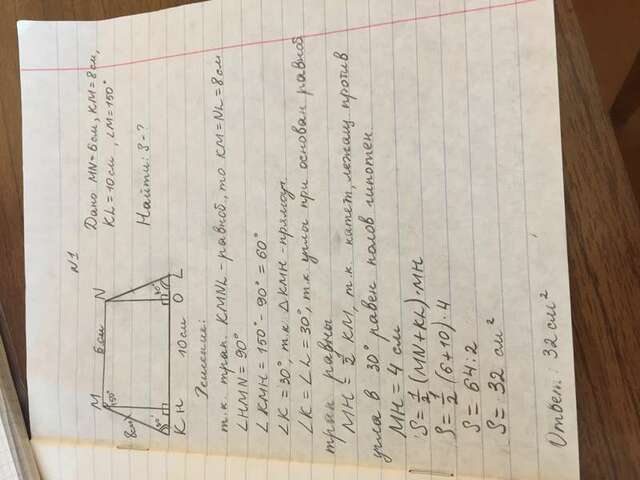 N1
Дано MN=6см, KM=8см,
KL=10см, ∠M=150°
Найти: S-?
M
6см
N
150°
8см
30°
30°
K
H
10см
O
L
Решение:
т.к. трап. KMNL - равноб., то KM=NL=8см
∠HMN = 90°
∠KMH = 150° - 90° = 60°
∠K = 30°, т.к. △KMH - прямоуг
∠K = ∠L = 30°, т.к. углы при основан равноб
трап. равны
MH = 1/2 KM, т.к. катет, лежащ против
угла в 30° равен полов гипотен.
MH = 4 см
S = 1/2 (MN+KL)·MH
S = 1/2 (6+10)·4
S = 64:2
S = 32 см²
Ответ: 32 см²